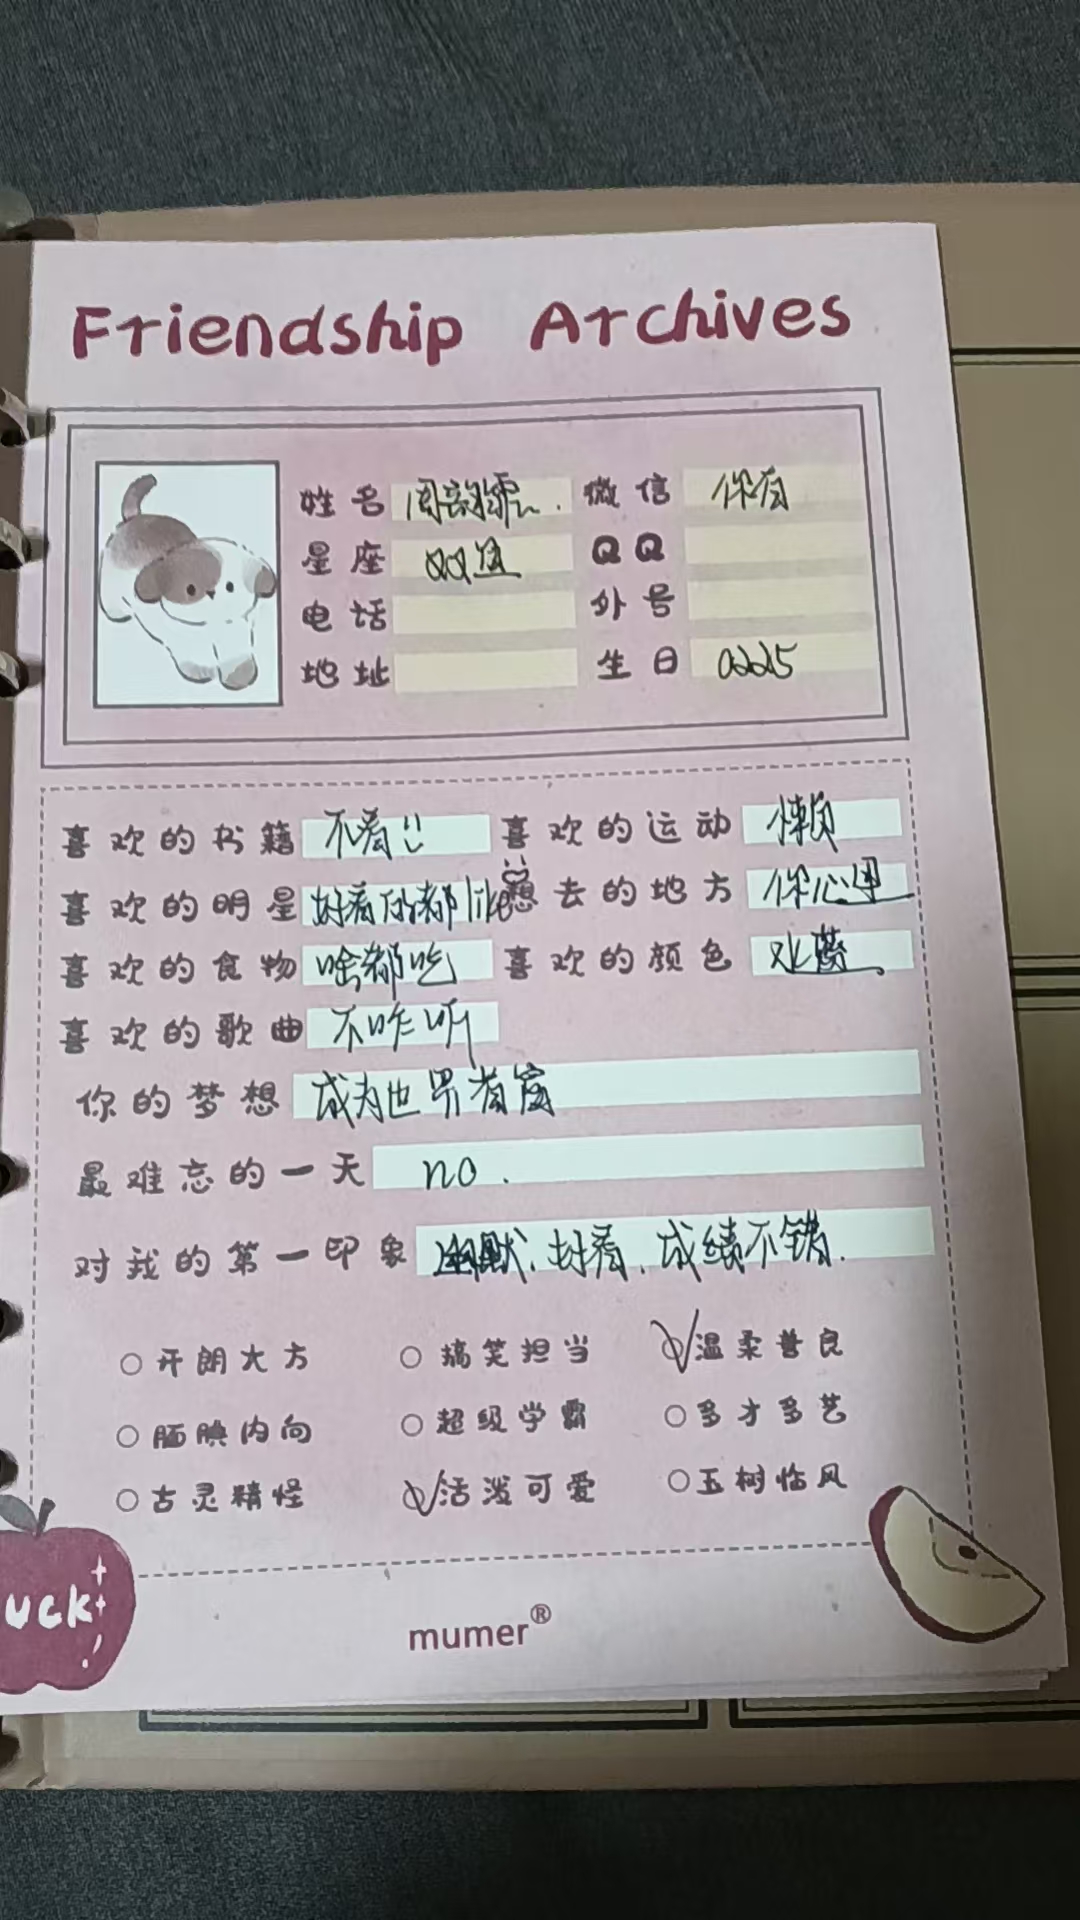 Friendship Archives
姓名 周 微信 你有
星座 双鱼 QQ
电话 外号
地址 生日 0225
喜欢的书籍 不看!! 喜欢的运动 懒
喜欢的明星 好看的都like 想去的地方 你心里
喜欢的食物 啥都吃 喜欢的颜色 水蓝
喜欢的歌曲 不咋听
你的梦想 成为世界首富
最难忘的一天 no.
对我的第一印象 幽默、好看、成绩不错.
开朗大方 搞笑担当 温柔善良
腼腆内向 超级学霸 多才多艺
古灵精怪 活泼可爱 玉树临风
uck
mumer®